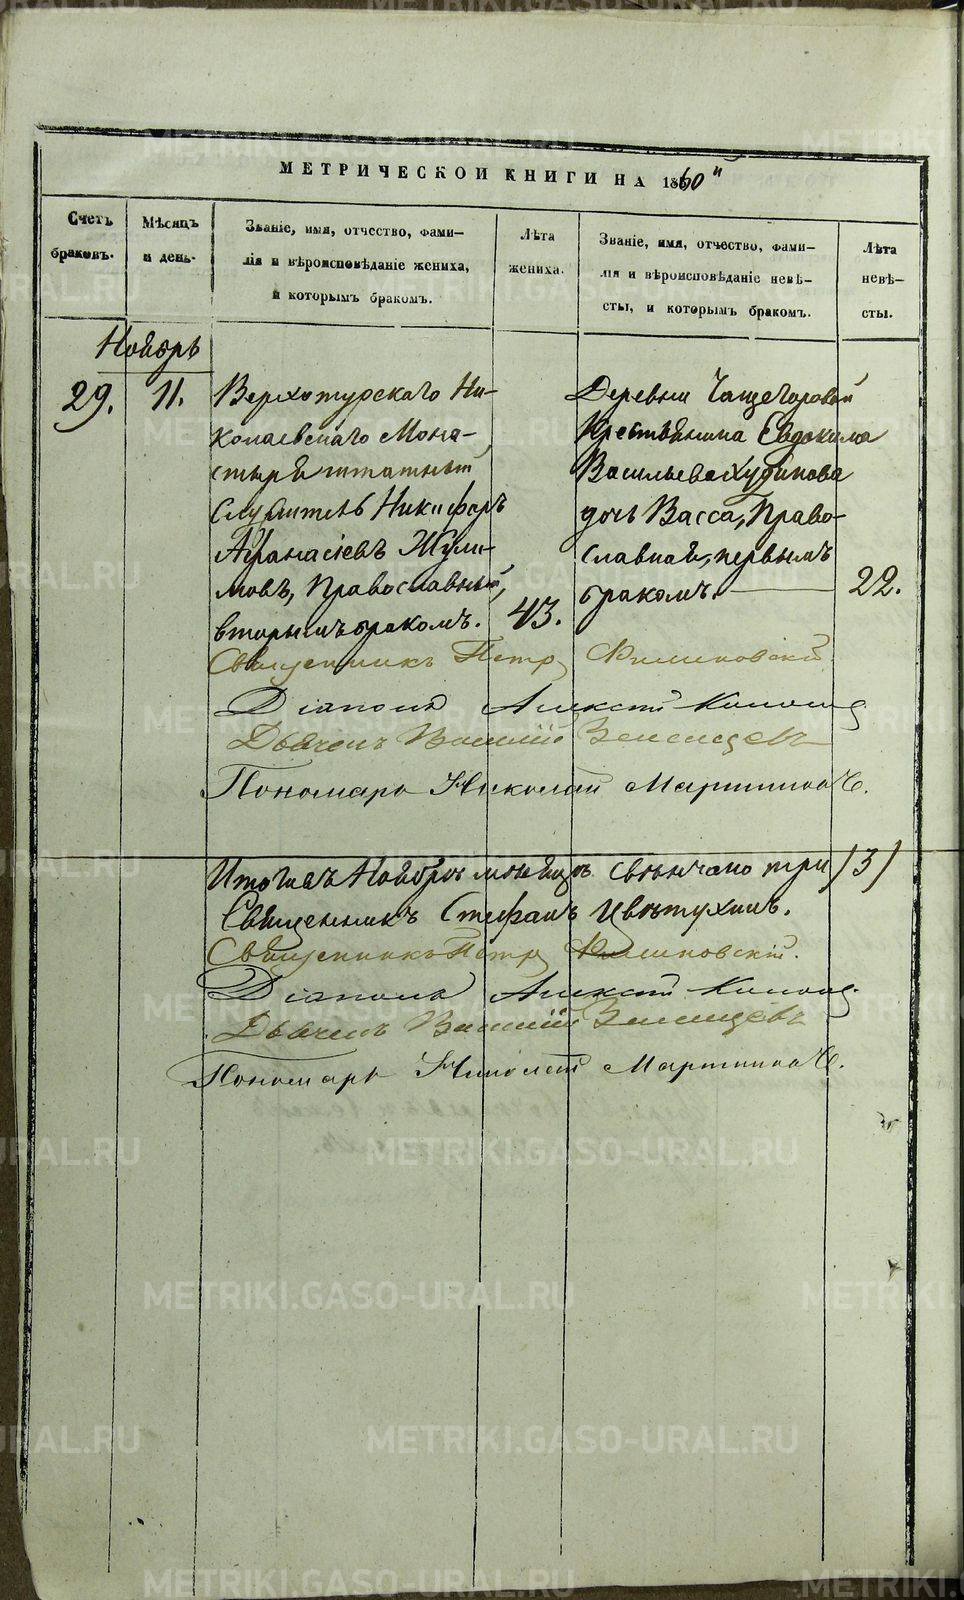 МЕТРИЧЕСКОЙ КНИГИ НА 1860"
Счетъ браковъ.
Мѣсяцъ и день.
Званіе, имя, отчество, фами-
лія и вѣроисповѣданіе жениха,
и которымъ бракомъ.
Лѣта
жениха.
Званіе, имя, отчество, фами-
лія и вѣроисповѣданіе невѣ-
сты, и которымъ бракомъ.
Лѣта
невѣ-
сты.
Ноябрь
29.
11.
Верхотурскаго Ни-
колаевскаго Мона-
стыря штатный
Служитель Никифоръ
Афанасіевъ Жули-
мовъ, Православный,
вторымъ бракомъ.
43.
Деревни Чащегоровой
Крестьянина Евдокима
Васильева Худякова
дочь Васса, Право-
славная, первымъ
бракомъ.
22.
Священникъ Петр
Діаконъ Алексѣй
Дьячекъ Василій
Пономарь Николай
Итого въ Ноябрѣ мѣсяцѣ свѣнчано три /3/
Священникъ Стефанъ Цвѣтухинъ.
Священникъ Петр
Діаконъ Алексѣй
Дьячекъ Василій
Пономарь Николай
METRIKI.GASO-URAL.RU